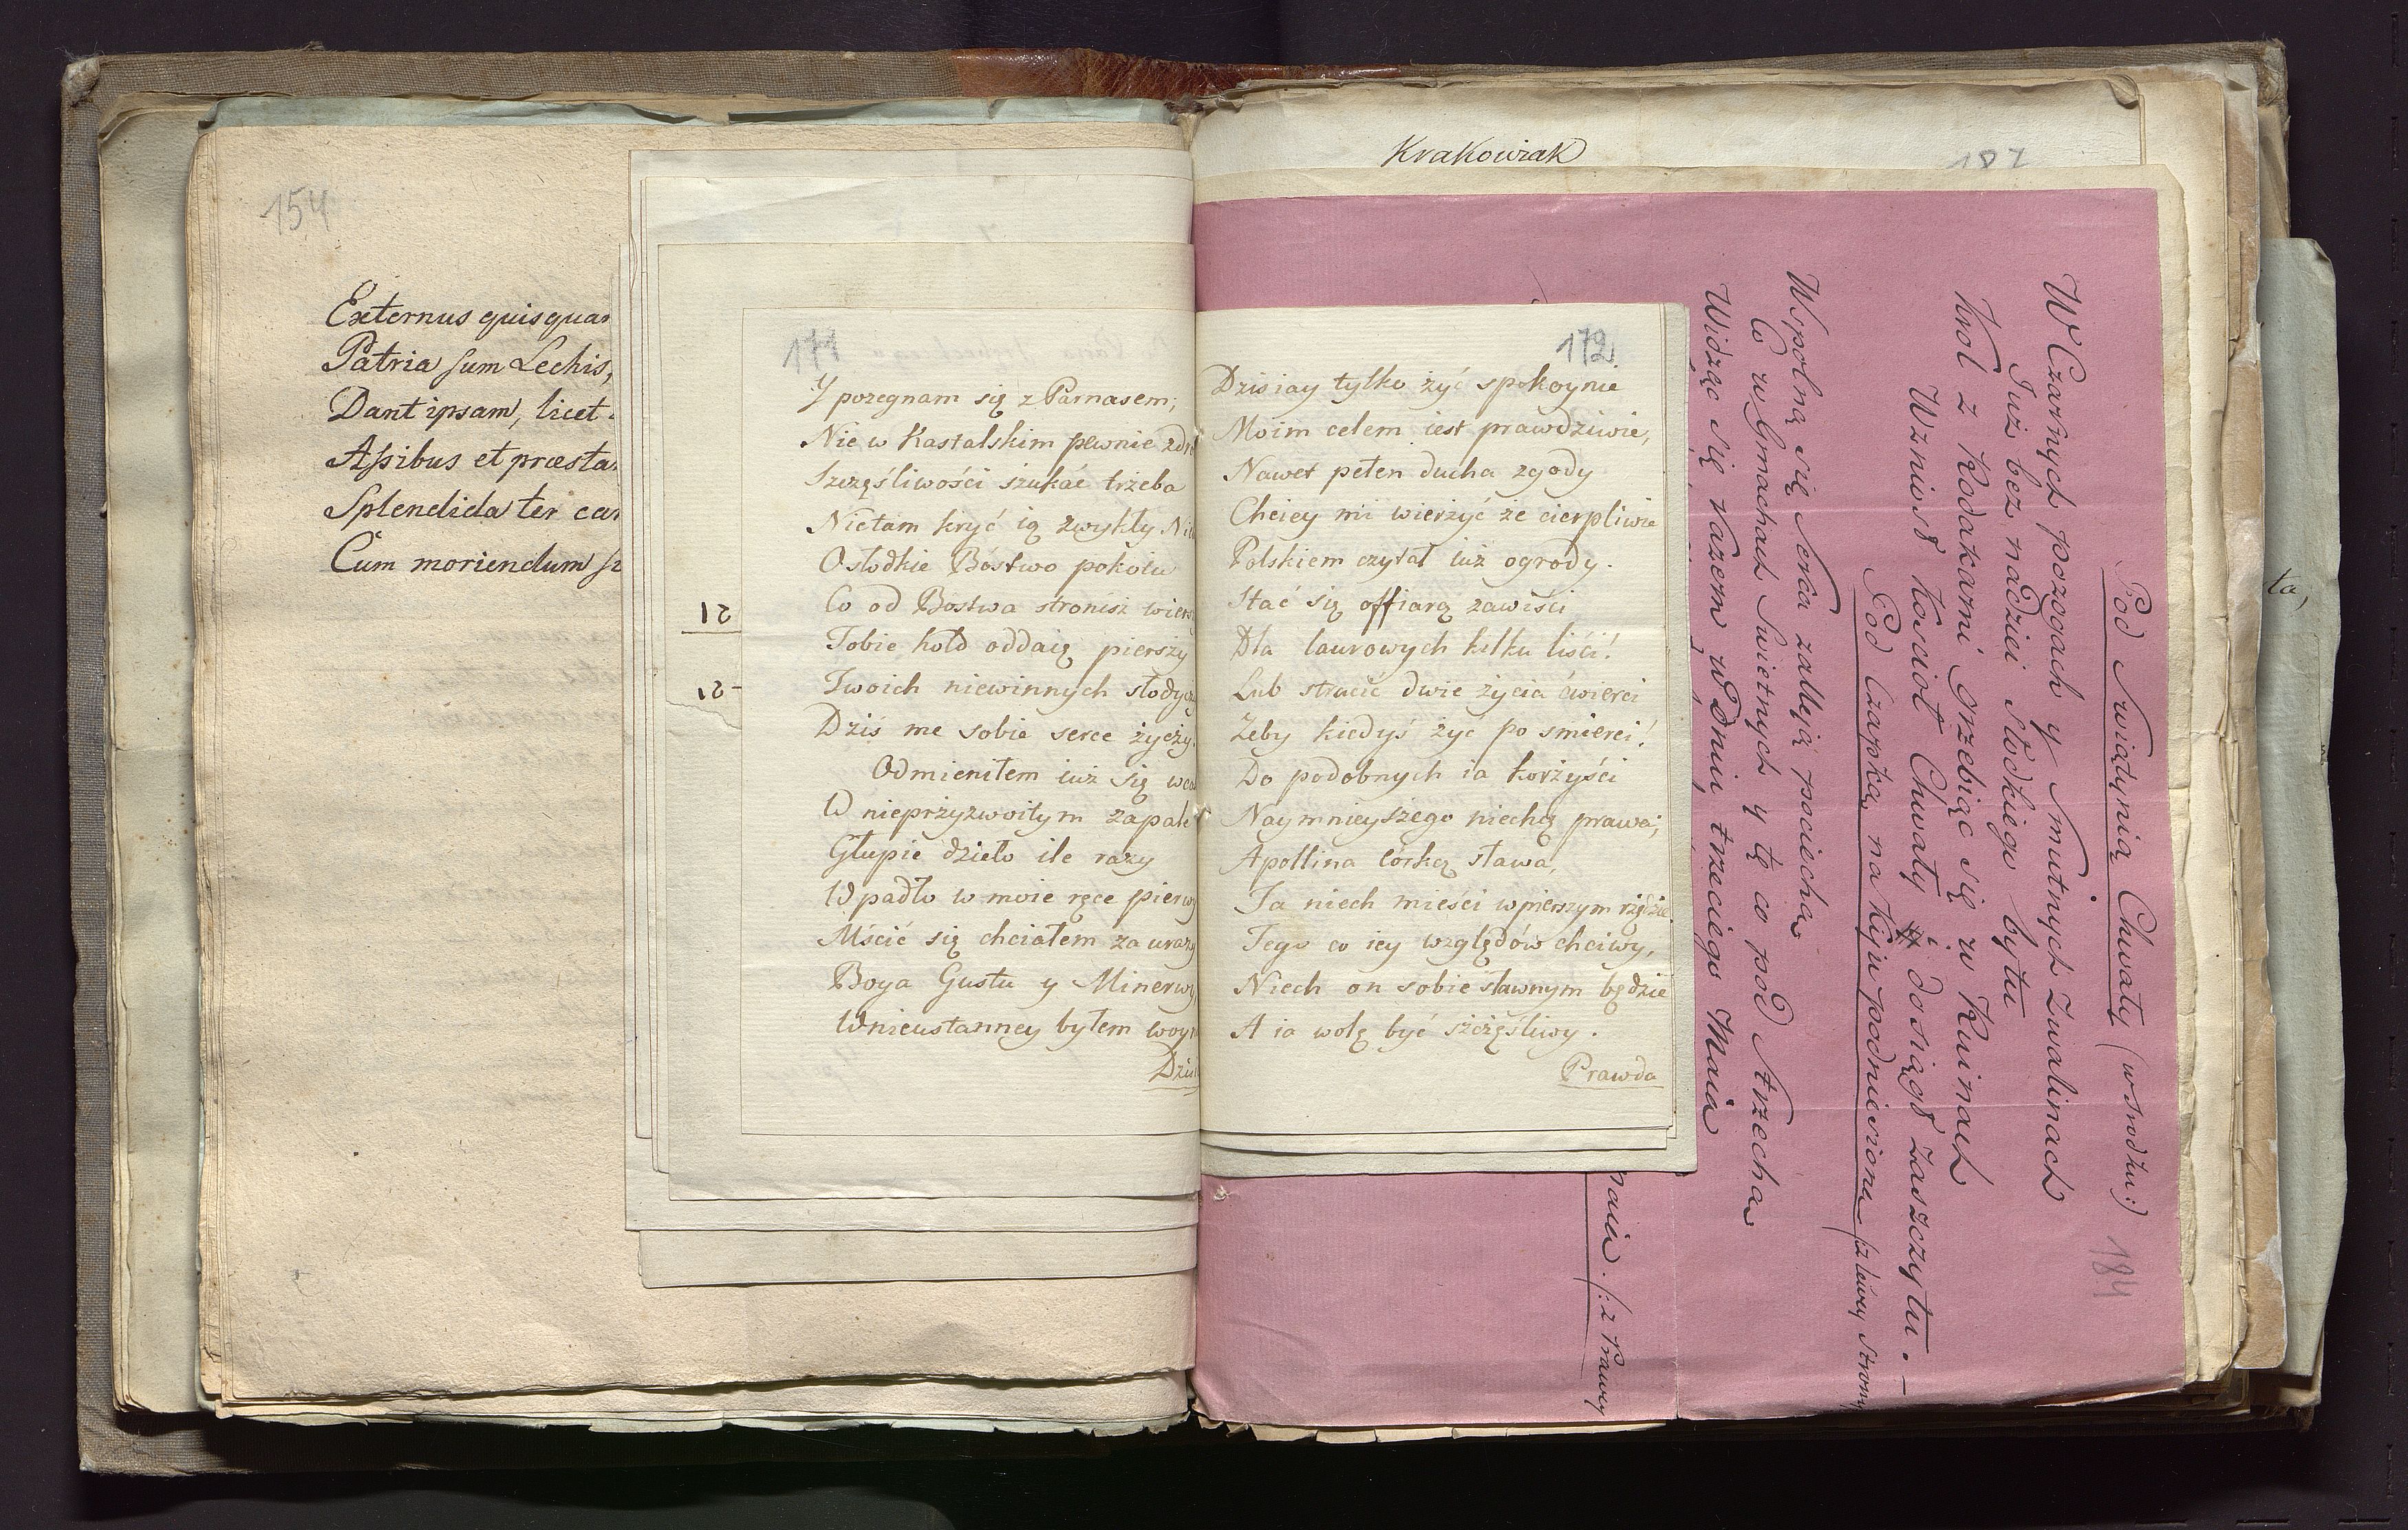 154
Externus quisquam
Patria sum Lechis,
Dant ipsam, licet
Assibus et præsta
Splendida ter
Cum moriendum
12
12-
171
Y pozegnam się z Parnasem;
Nie w Kastalskim pewnie zdro
Szczęśliwości szukać trzeba
Nie tam kryć ią zwykły Nie
O słodkie Bóstwo pokoiu
Co od Bostwa stronisz wiersz
Tobie hołd oddaię pierszy
Twoich niewinnych słodycz
Dziś me sobie serce życzy.
Odmieniłem iuż się wca
W nieprzyzwoitym zapale
Głupie dzieło ile razy
Wpadło w moie ręce pierwsz
Mścić się chciałem za urazy
Boga Gustu y Minerwy,
W nieustanney byłem woyn
Dziś
172
Dzisiay tylko żyć spokoynie
Moim celem iest prawdziwie,
Nawet pełen ducha zgody
Chciey mi wierzyć że cierpliwie
Polskiem czytał iuż ogrody.
Stać się offiarą zawiści
Dla laurowych kilku liści!
Lub stracić dwie życia ćwierci
Żeby kiedyś żyć po smierci!
Do podobnych ia korzyści
Naymnieyszego niechcę prawa;
Apollina córką sława,
Ta niech mieści w pierszym rzędzie
Tego co iey względów chciwy,
Niech on sobie sławnym będzie
A ia wolę być szczęśliwy.
Prawda
Krakowiak
187
184
Pod Swiątynią Chwały (w srodku:)
W Czarnych pozogach y smutnych zwalinach
Juź bez nadziei słodkiego bytu
Krol z Rodakami grzebiąc się w Ruinach
Wzniosł Kościoł Chwały i dosiągł zaszczytu.-
Pod Czapką na Kiju podniesioną (z lewey strony
Wspolną się serca zalleją pociechą
Co w Gmachach Swietnych y tę co pod strzechą
Widząc się razem w Dniu trzeciego Maia
(: z Prawey
ta,